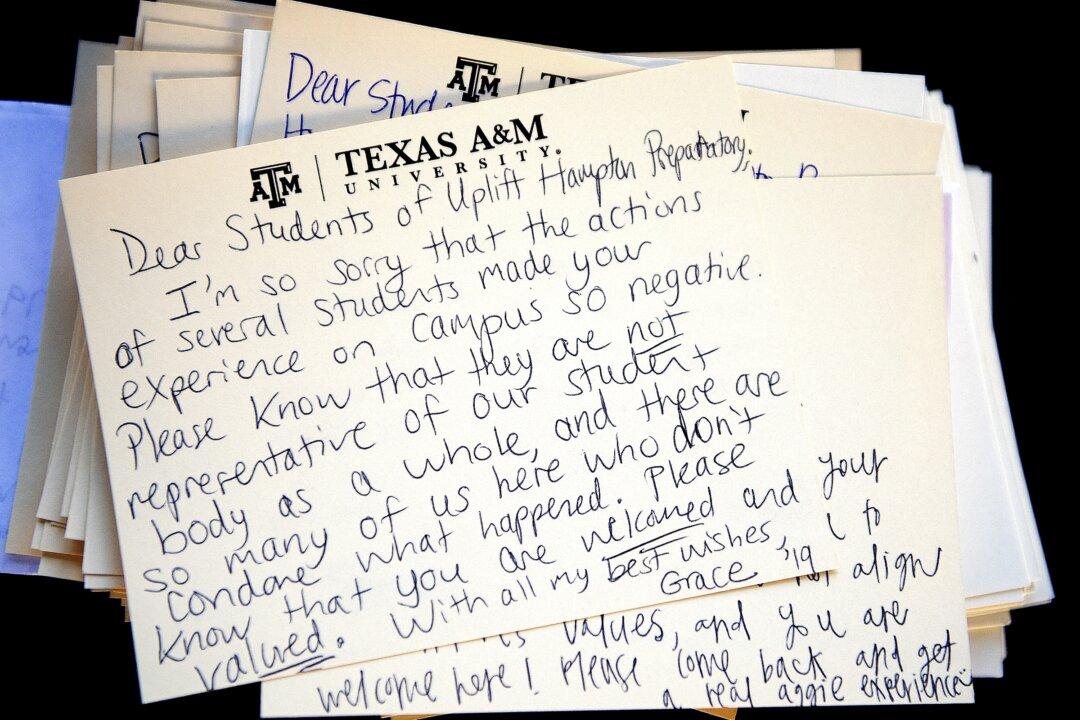 Dear Stud
ATM
ATM TEXAS A&M
UNIVERSITY®
Dear Students of Uplift Hampton Preparatory,
I'm so sorry that the actions
of several students made your
experience on campus so negative.
Please know that they are not
representative of our student
body as a whole, and there are
so many of us here who don't
condone what happened. Please
know that you are welcomed and your
valued. With all my best wishes,
Grace '19
to
align
values, and you are
welcome here! Please come back and get
a real aggie experience